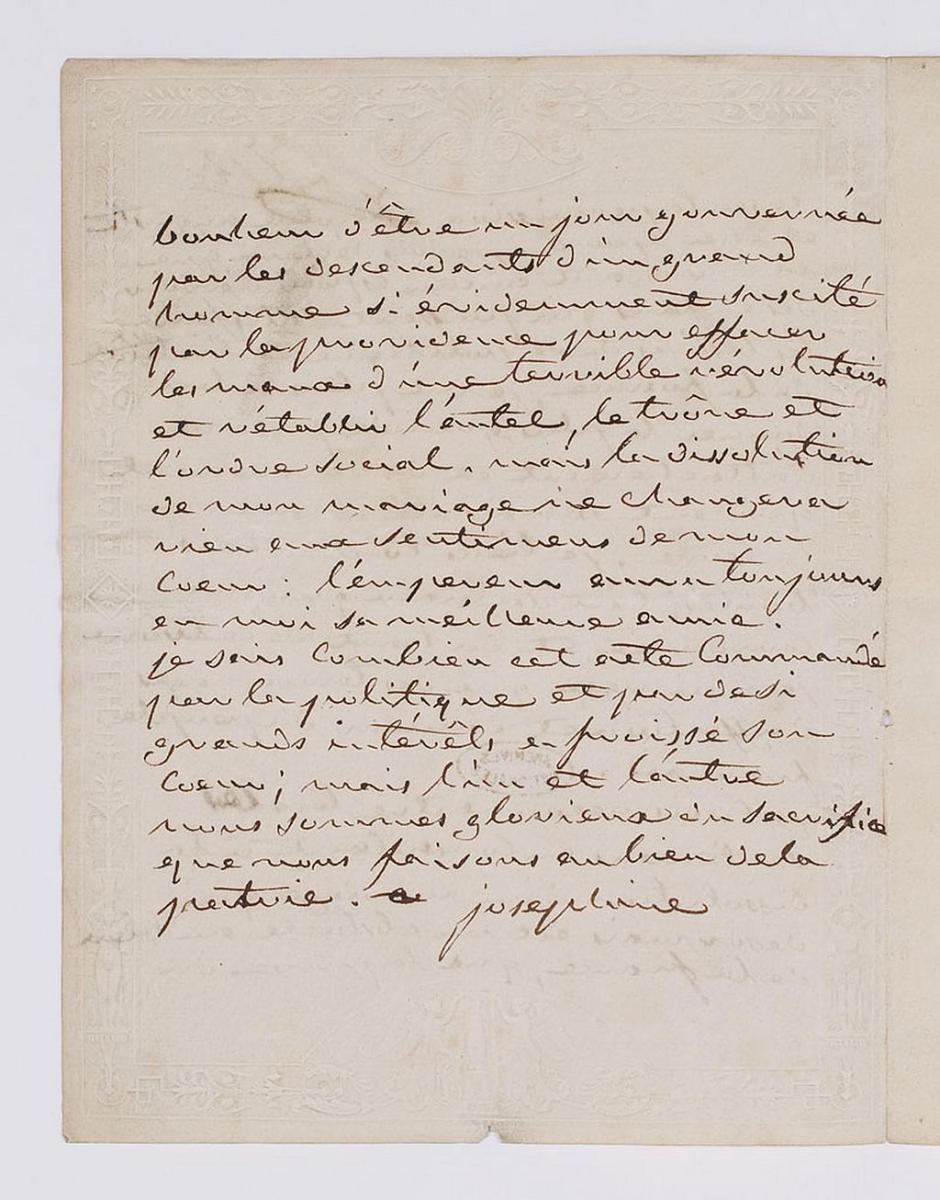 bonheur d'être un jour gouvernée
par les descendants d'un grand
homme si évidemment suscité
par la providence pour effacer
les maux d'une terrible révolution
et rétablir l'autel, le trône et
l'ordre social. mais la dissolution
de mon mariage ne changera
rien aux sentimens de mon
coeur: l'empereur aura toujours
en moi sa meilleure amie.
je sais combien cet acte Commandé
par la politique et par de si
grands intérêts a froissé son
coeur; mais l'un et l'autre
nous sommes glorieux du sacrifice
que nous faisons au bien de la
patrie. josephine